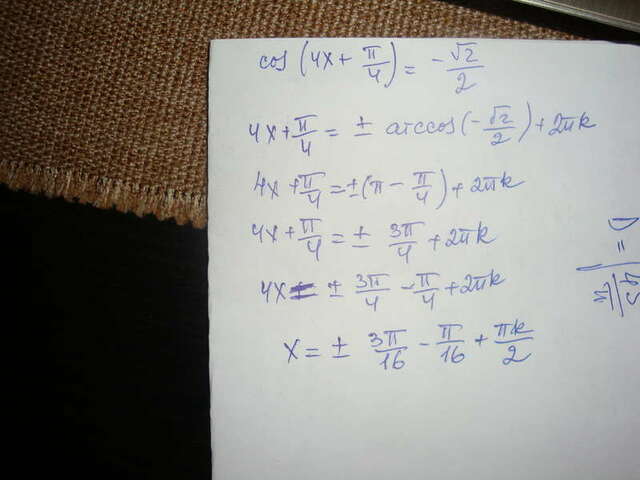 cos(4x + π/4) = -√2/2
4x + π/4 = ± arccos(-√2/2) + 2πk
4x + π/4 = ±(π - π/4) + 2πk
4x + π/4 = ± 3π/4 + 2πk
4x = ± 3π/4 - π/4 + 2πk
x = ± 3π/16 - π/16 + πk/2